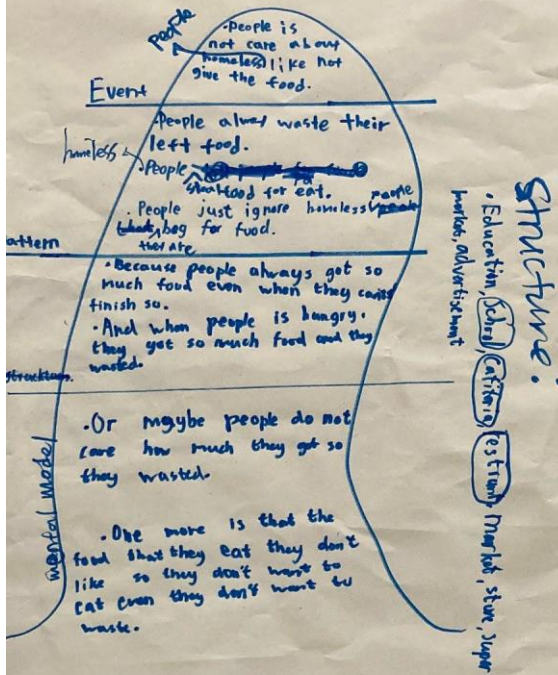 people
•People is
not care about
homeless like not
give the food.
Event
•People alwas waste their
left food.
homeless
•People
steal food for eat.
•People just ignore homeless people
beg for food.
they are
attern
•Because people always got so
much food even when they can't
finish so.
•And when people is hungry.
they got so much food and they
wasted.
structure.
•Or maybe people do not
care how much they got so
they wasted.
mental model
•One more is that the
food that they eat they don't
like so they don't want to
eat even they don't want to
waste.
Structure.
•Education, School, Cafiteria, restrunt, market, store, super
market, advertisement